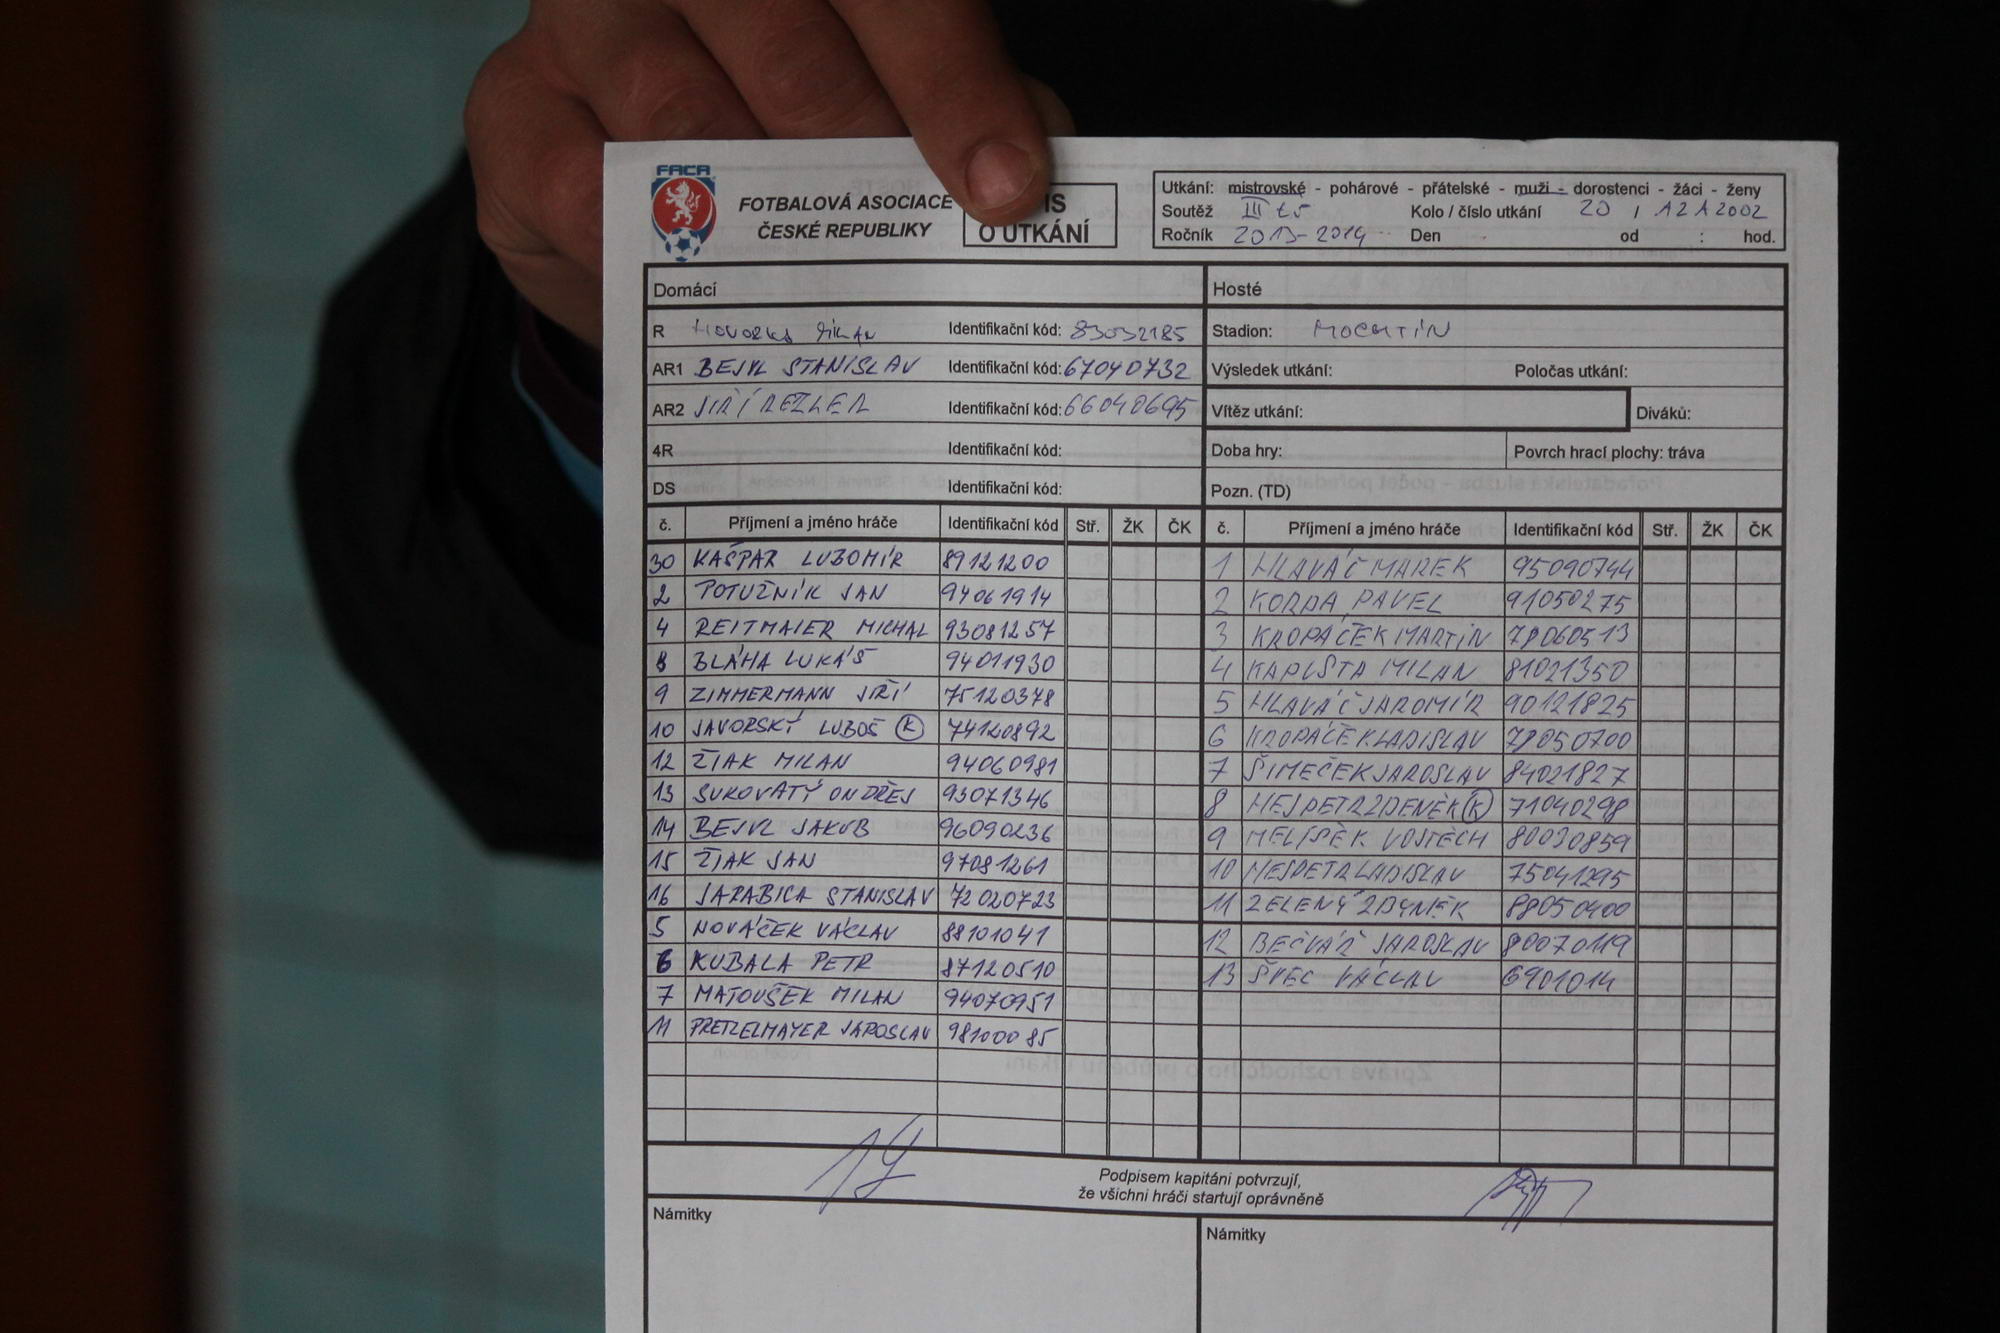 FACR
FOTBALOVÁ ASOCIACE
ČESKÉ REPUBLIKY
IS
O UTKÁNÍ
Utkání: mistrovské - pohárové - přátelské - muži - dorostenci - žáci - ženy
Soutěž III tř Kolo / číslo utkání 20 / A2A2002
Ročník 2013-2014 Den od : hod.
Domácí Hosté
R HOVORKA MILAN Identifikační kód: 83032185 Stadion: MOCHTÍN
AR1 BEJVL STANISLAV Identifikační kód: 67040732 Výsledek utkání: Poločas utkání:
AR2 JIŘÍ REZLER Identifikační kód: 66040695 Vítěz utkání: Diváků:
4R Identifikační kód: Doba hry: Povrch hrací plochy: tráva
DS Identifikační kód: Pozn. (TD)
č. Příjmení a jméno hráče Identifikační kód Stř. ŽK ČK č. Příjmení a jméno hráče Identifikační kód Stř. ŽK ČK
30 KAŠPAR LUBOMÍR 89121200 1 HLAVÁČ MAREK 95090744
2 POTUŽNÍK JAN 94061914 2 KORDA PAVEL 91050275
4 REITMAIER MICHAL 93081257 3 KROPÁČEK MARTIN 78060513
8 BLÁHA LUKÁŠ 94011930 4 KAPUSTA MILAN 81021350
9 ZIMMERMANN JIŘÍ 75120378 5 HLAVÁČ JAROMÍR 90121825
10 JAVORSKÝ LUBOŠ K 74120892 6 KROPÁČEK LADISLAV 78050700
12 ŽIAK MILAN 94060981 7 ŠIMEČEK JAROSLAV 84021827
13 SUKOVATÝ ONDŘEJ 93071346 8 NESPETR ZDENĚK K 71040298
14 BEJVL JAKUB 96090236 9 VOJTĚCH 80030859
15 ŽIAK JAN 97081261 10 LADISLAV 75041295
16 JARABICA STANISLAV 72020723 11 ZELENÝ ZBYNĚK 88050400
5 NOVÁČEK VÁCLAV 88101041 12 BEČVÁŘ JAROSLAV 80070119
6 KUBALA PETR 87120510 13 ŠVEC VÁCLAV 6901014
7 MATOUŠEK MILAN 94070951
11 PRETZELMAYER JAROSLAV 98100085
Podpisem kapitáni potvrzují,
že všichni hráči startují oprávněně
Námitky Námitky